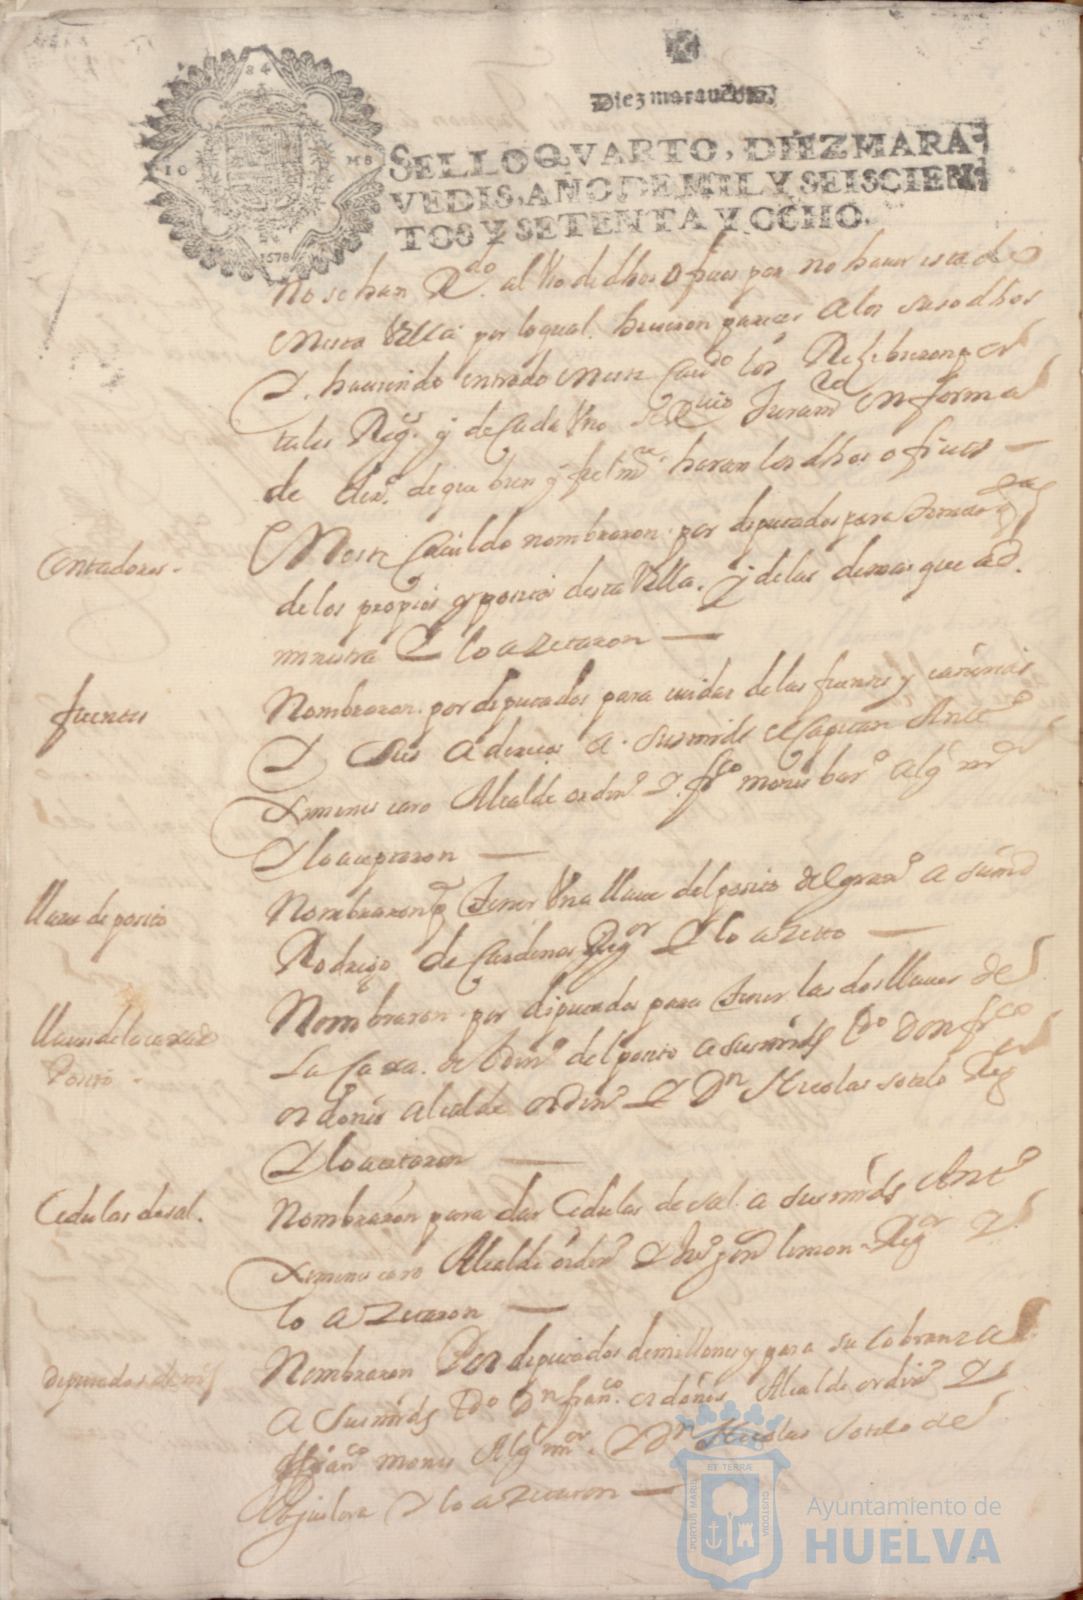 Diez maravedis.
SELLO QVARTO, DIEZ MARA-
VEDIS, AÑO DE MIL Y SEISCIEN-
TOS Y SETENTA Y OCHO.
1678
No se han al de dhos ofisios por no hauer estado
en esta Villa por lo qual hisieron pareser a los susodhos
Y hauiendo entrado en este Caudo los Resibieron por
tales Regs. y de Cada Vno se Juramto en forma
de dero. de que bien y fielmte. haran los dhos ofisios
Contadores.
En este Cauildo nombraron por diputados para
de los propios y posito desta Villa. Y de las demas que ad-
ministra Y lo azetaron
fuentes
Nombraron por diputados para cuidar de las fuentes y cañerias
Y sus aderesos a Susmrds el Capitan Anto
Ximenes caro Alcalde ordino. Y frco mones Algl mr
Y lo aceptaron
llaue de posito
Nombraron pa tener Vna llaue del posito del grano a sumd
Rodrigo de Cardenas Regor Y lo azeto
llaues de la caxa de
Posito.
Nombraron por diputados para tener las dos llaues de
La Caxa de del posito a susmrds Ldo Don frco
ordones alcalde ordino Y Dn Nicolas sotelo Regor
Y lo azetaron
Cedulas de sal.
Nombraron para dar Cedulas de sal a susmrds Anto
Ximenes caro Alcalde ordino Y limon Regor Y
lo azetaron
diputados de mis
Nombraron Por diputados de millones y para su cobranza
a Susmrds Ldo Dn franco. ordones Alcalde ordino Y
franco mones Algl mor. Y Dn Nicolas sotelo de
Y lo azetaron
PORTUS MARIS
ET TERRÆ
CUSTODIA
Ayuntamiento de
HUELVA